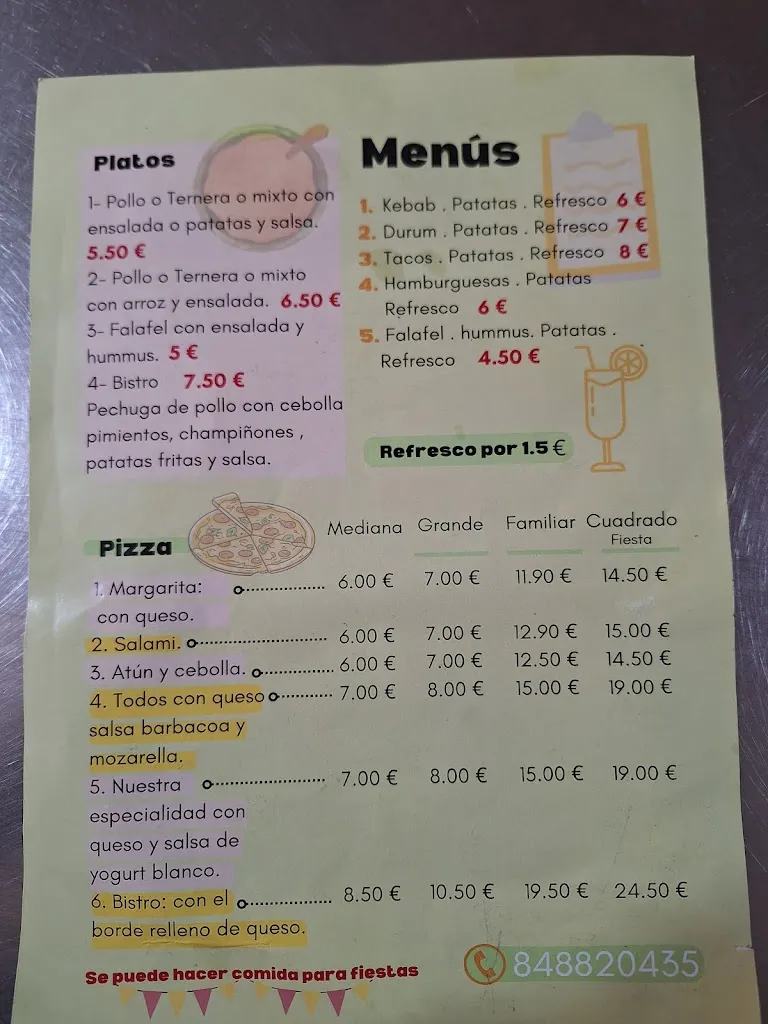 Platos
1- Pollo o Ternera o mixto con
ensalada o patatas y salsa.
5.50 €
2- Pollo o Ternera o mixto
con arroz y ensalada. 6.50 €
3- Falafel con ensalada y
hummus. 5 €
4- Bistro 7.50 €
Pechuga de pollo con cebolla
pimientos, champiñones ,
patatas fritas y salsa.
Menús
1. Kebab . Patatas . Refresco 6 €
2. Durum . Patatas . Refresco 7 €
3. Tacos . Patatas . Refresco 8 €
4. Hamburguesas . Patatas
Refresco 6 €
5. Falafel . hummus. Patatas .
Refresco 4.50 €
Refresco por 1.5 €
Pizza Mediana Grande Familiar Cuadrado
Fiesta
1. Margarita: 6.00 € 7.00 € 11.90 € 14.50 €
con queso.
2. Salami. 6.00 € 7.00 € 12.90 € 15.00 €
3. Atún y cebolla. 6.00 € 7.00 € 12.50 € 14.50 €
4. Todos con queso 7.00 € 8.00 € 15.00 € 19.00 €
salsa barbacoa y
mozarella.
5. Nuestra 7.00 € 8.00 € 15.00 € 19.00 €
especialidad con
queso y salsa de
yogurt blanco.
6. Bistro: con el 8.50 € 10.50 € 19.50 € 24.50 €
borde relleno de queso.
Se puede hacer comida para fiestas
848820435